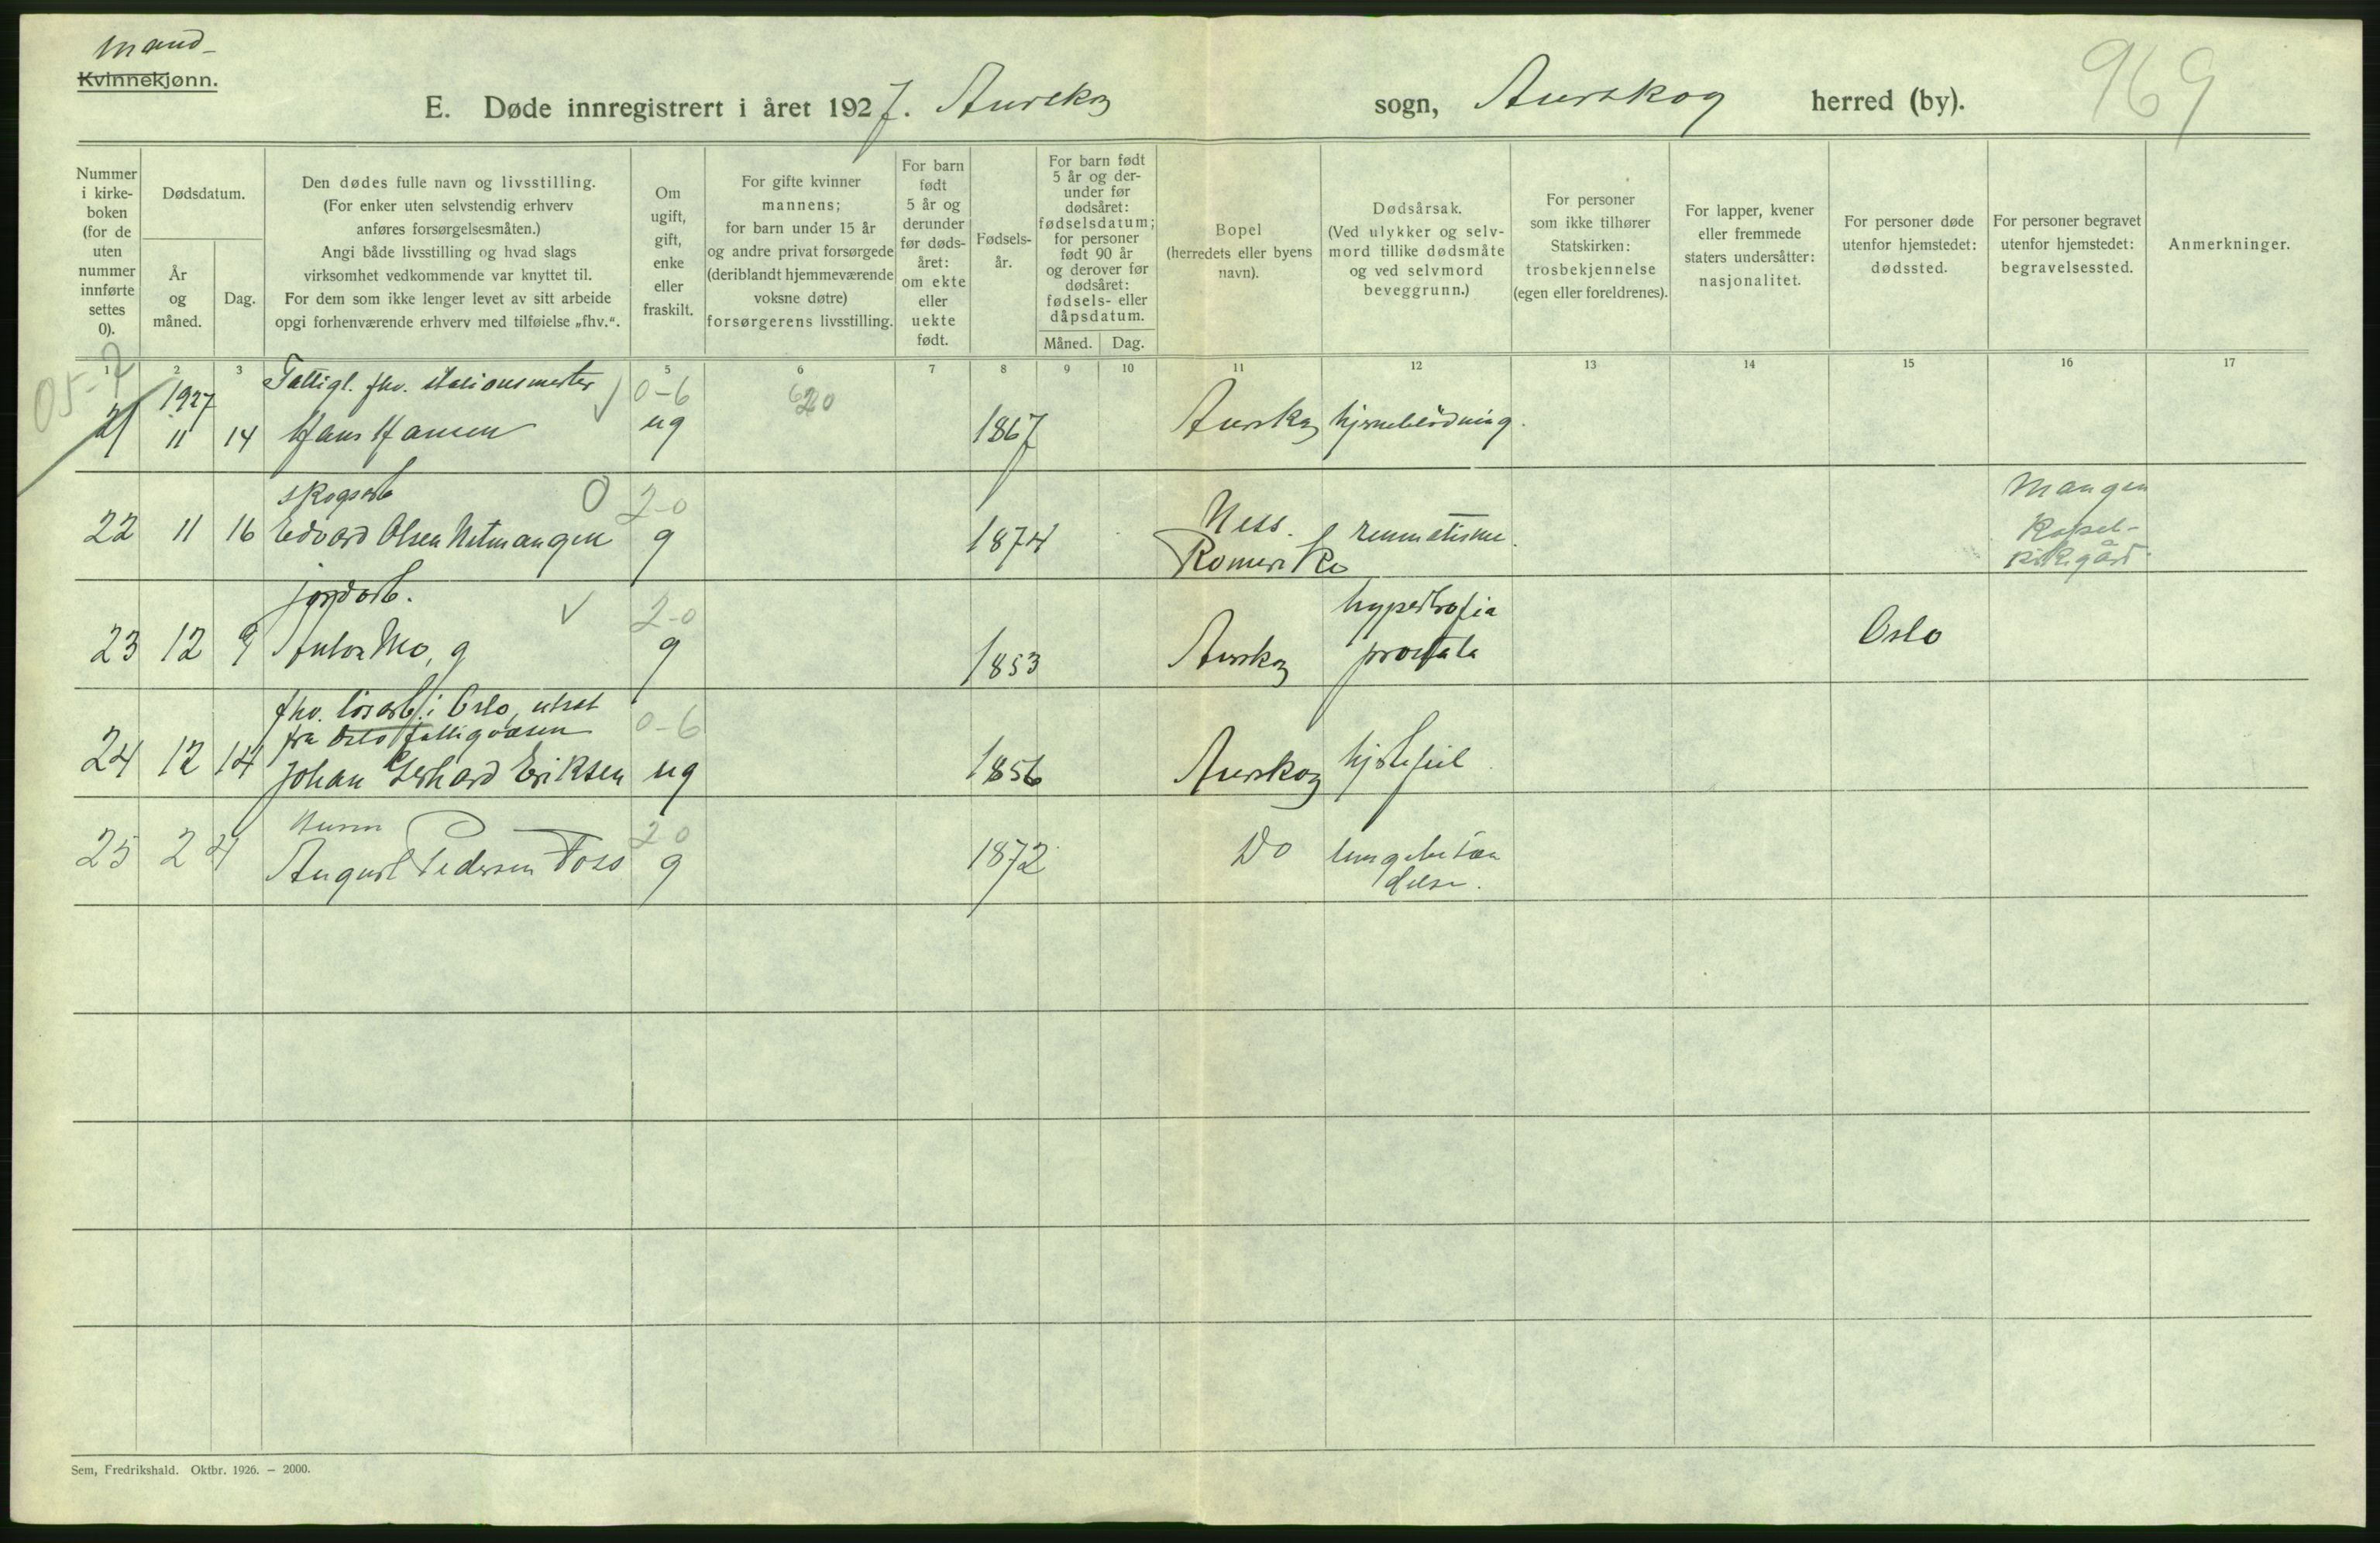 Mand-
Kvinnekjønn.
969
E. Døde innregistrert i året 1927. Aurskog sogn, Aurskog herred (by).
Nummer i kirke-boken (for de uten nummer innførte settes 0).
Dødsdatum.
År og måned.
Dag.
Den dødes fulle navn og livsstilling.
(For enker uten selvstendig erhverv
anføres forsørgelsesmåten.)
Angi både livsstilling og hvad slags
virksomhet vedkommende var knyttet til.
For dem som ikke lenger levet av sitt arbeide
opgi forhenværende erhverv med tilføielse „fhv.“.
Om ugift, gift, enke eller fraskilt.
For gifte kvinner
mannens;
for barn under 15 år
og andre privat forsørgede
(deriblandt hjemmeværende
voksne døtre)
forsørgerens livsstilling.
For barn født 5 år og derunder før døds-året: om ekte eller uekte født.
Fødsels-år.
For barn født 5 år og der-under før dødsåret: fødselsdatum; for personer født 90 år og derover før dødsåret: fødsels- eller dåpsdatum.
Måned. Dag.
Bopel
(herredets eller byens
navn).
Dødsårsak.
(Ved ulykker og selv-
mord tillike dødsmåte
og ved selvmord
beveggrunn.)
For personer
som ikke tilhører
Statskirken:
trosbekjennelse
(egen eller foreldrenes).
For lapper, kvener
eller fremmede
staters undersåtter:
nasjonalitet.
For personer døde
utenfor hjemstedet:
dødssted.
For personer begravet
utenfor hjemstedet:
begravelsessted.
Anmerkninger.
1 2 3 5 6 7 8 9 10 11 12 13 14 15 16 17
05-7
Fattigl. fhv. stasionsmester 0-6
21 1927 11 14 Hans Hansen ug 1867 Aurskog hjerneblødning.
skogsarb 0 2-0
22 11 16 Edvard Olsen Netmangen g 1874 Ness. Romerike reumatisme. Mangen Kapel-kirkegård
jordarb. 2-0
23 12 9 Anton Mo, g g 1853 Aurskog hypertrofia prostata Oslo
fhv. løsarb. i Oslo, utsat
fra Oslo fattigvæsen 0-6
24 12 14 Johan Gerhard Eriksen ug 1856 Aurskog hjertefeil
Husm 20
25 2 4 August Pedersen Foss g 1872 Do lungebetændelse.
Sem, Fredrikshald. Oktbr. 1926. — 2000.